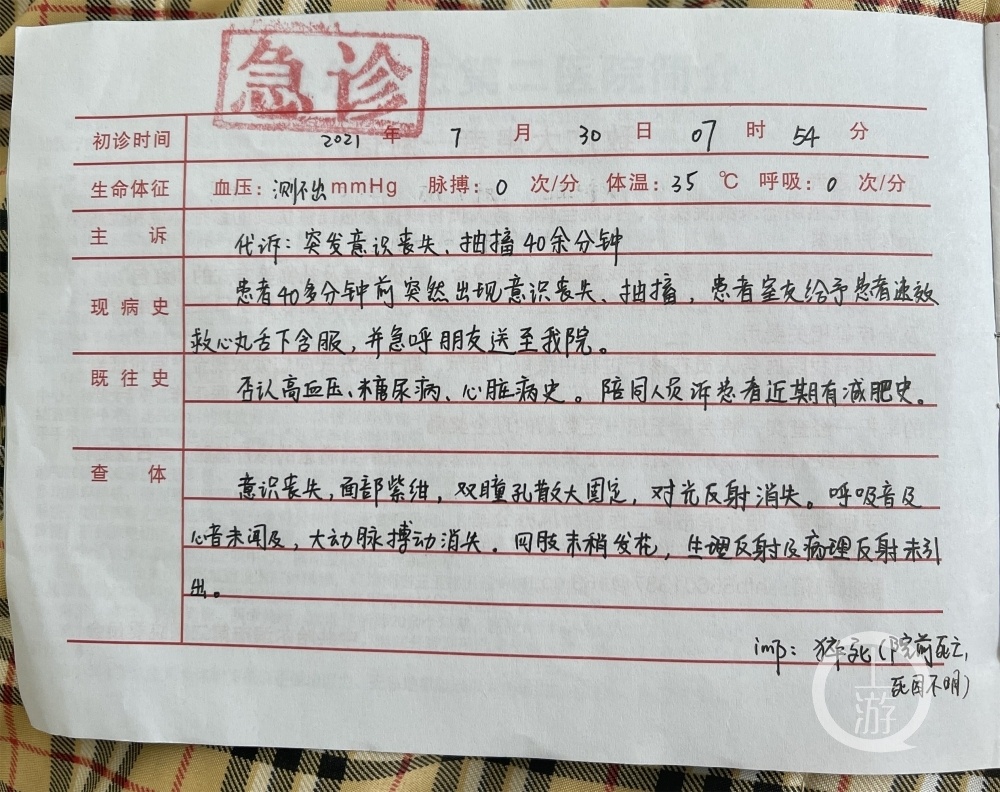 急诊
初诊时间 2021 年 7 月 30 日 07 时 54 分
生命体征 血压：测不出 mmHg 脉搏：0 次/分 体温：35 ℃ 呼吸：0 次/分
主 诉 代诉：突发意识丧失、抽搐40余分钟
患者40多分钟前突然出现意识丧失、抽搐，患者室友给予患者速效
现 病 史
救心丸舌下含服，并急呼朋友送至我院。
既 往 史 否认高血压、糖尿病、心脏病史。陪同人员诉患者近期有减肥史。
查 体 意识丧失，面部紫绀，双瞳孔散大固定，对光反射消失。呼吸音及
心音未闻及，大动脉搏动消失。四肢末稍发花，生理反射及病理反射未引
出。
imp：猝死（院前死亡，
死因不明）
上游